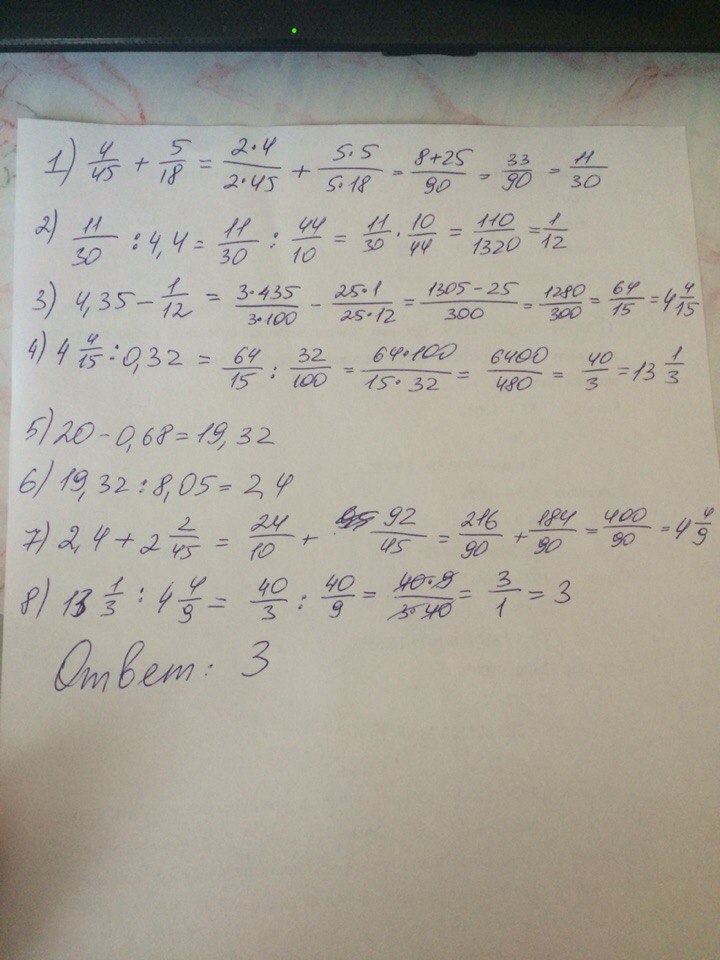 1) 4/45 + 5/18 = 2·4/2·45 + 5·5/5·18 = 8+25/90 = 33/90 = 11/30
2) 11/30 : 4,4 = 11/30 : 44/10 = 11/30 · 10/44 = 110/1320 = 1/12
3) 4,35 - 1/12 = 3·435/3·100 - 25·1/25·12 = 1305-25/300 = 1280/300 = 64/15 = 4 4/15
4) 4 4/15 : 0,32 = 64/15 : 32/100 = 64·100/15·32 = 6400/480 = 40/3 = 13 1/3
5) 20 - 0,68 = 19,32
6) 19,32 : 8,05 = 2,4
7) 2,4 + 2 2/45 = 24/10 + 92/45 = 216/90 + 184/90 = 400/90 = 4 4/9
8) 13 1/3 : 4 4/9 = 40/3 : 40/9 = 40·9/3·40 = 3/1 = 3
Ответ: 3